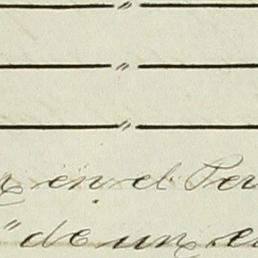 "
"
"
en el Per
"de un e